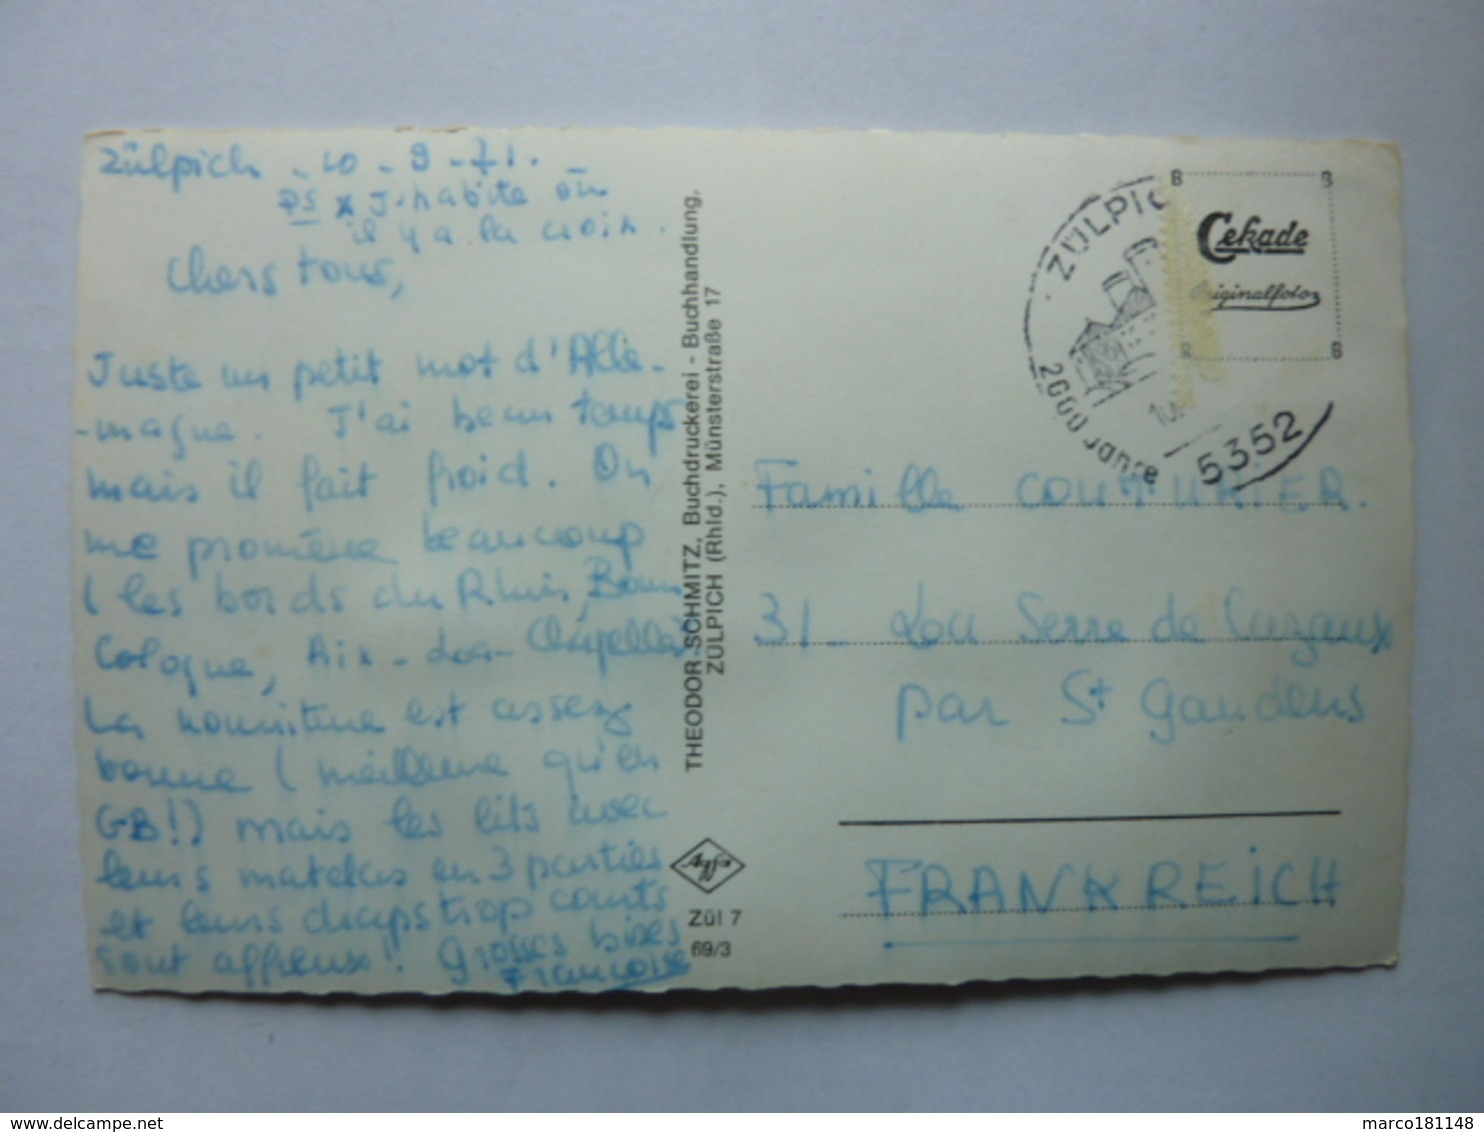 Zülpich - 10 - 9 - 71.
PS x J'habite où
il y a la croix.
Chers tous,
Juste un petit mot d'Alle-
-magne. J'ai beau temps
mais il fait froid. On
me promène beaucoup
(les bords du Rhin, Bonn
Cologne, Aix-La-Chapelle)
La nourriture est assez
bonne (meilleure qu'en
GB!) mais les lits avec
leurs matelas en 3 parties
et leurs draps trop courts
sont affreux! Grosses bises
Françoise
THEODOR SCHMITZ, Buchdruckerei - Buchhandlung,
ZÜLPICH (Rhld.), Münsterstraße 17
Zül 7
69/3
ZÜLPIC
2000 Jahre
5352
Cekade
Originalfoto
Famille COUTURIER.
31 - La Serre de Cazaux
par St Gaudens
FRANKREICH
http://www.delcampe.net
marco181148